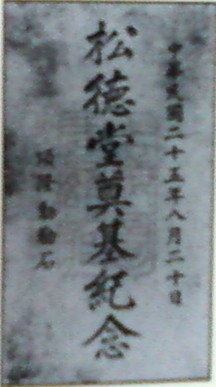 中華民國二十五年八月二十日
松德堂奠基紀念